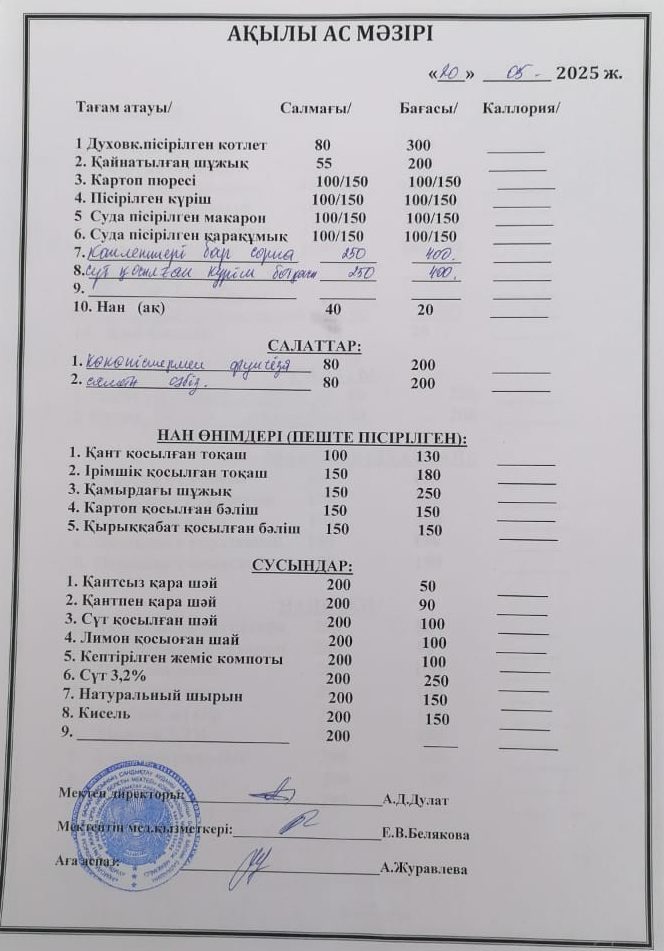 АҚЫЛЫ АС МӘЗІРІ
«20» 05. 2025 ж.
Тағам атауы/ Салмағы/ Бағасы/ Каллория/
1 Духовк.пісірілген котлет 80 300
2. Қайнатылған шұжық 55 200
3. Картоп пюресі 100/150 100/150
4. Пісірілген күріш 100/150 100/150
5 Суда пісірілген макарон 100/150 100/150
6. Суда пісірілген қарақұмық 100/150 100/150
7. бар сорпа 250 400.
8. сүт қосылған күріш 250 400.
9.
10. Нан (ақ) 40 20
САЛАТТАР:
1. көкөністермен фунчоза 80 200
2. 80 200
НАН ӨНІМДЕРІ (ПЕШТЕ ПІСІРІЛГЕН):
1. Қант қосылған тоқаш 100 130
2. Ірімшік қосылған тоқаш 150 180
3. Қамырдағы шұжық 150 250
4. Картоп қосылған бәліш 150 150
5. Қырыққабат қосылған бәліш 150 150
СУСЫНДАР:
1. Қантсыз қара шәй 200 50
2. Қантпен қара шәй 200 90
3. Сүт қосылған шәй 200 100
4. Лимон қосыоған шай 200 100
5. Кептірілген жеміс компоты 200 100
6. Сүт 3,2% 200 250
7. Натуральный шырын 200 150
8. Кисель 200 150
9. 200
Мектеп директоры: А.Д.Дулат
Мектептің мед.қызметкері: Е.В.Белякова
Аға аспаз: А.Журавлева